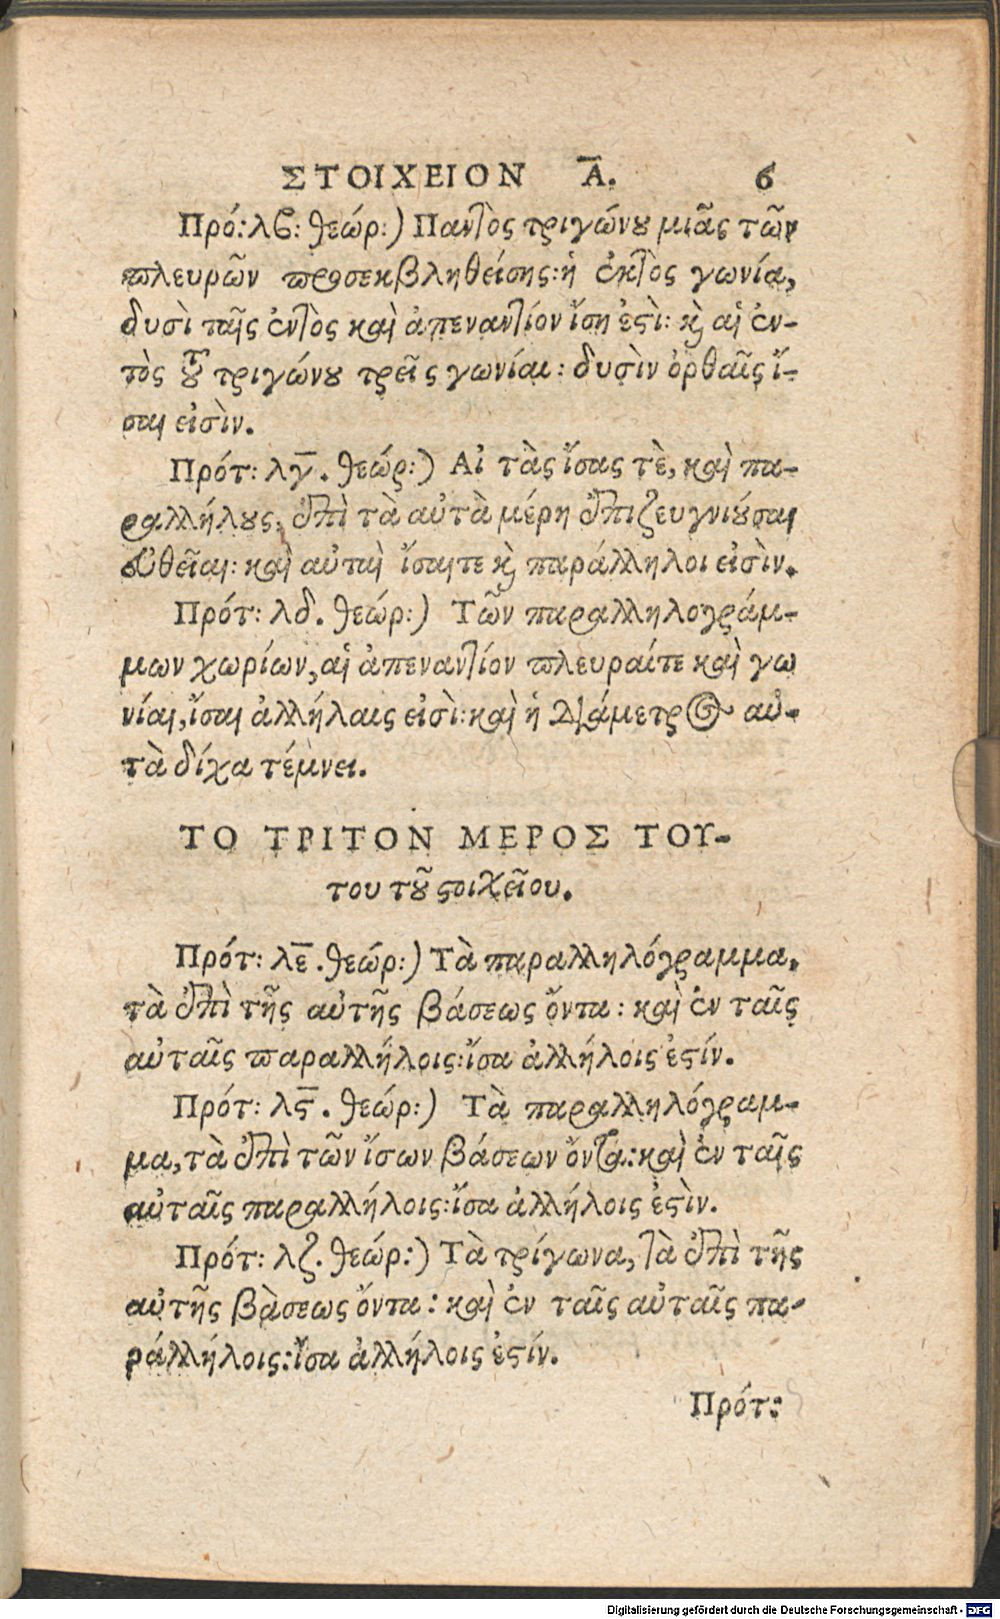 ΣΤΟΙΧΕΙΟΝ Α̅. 6
Πρό: λβ: θεώρ:) Παντὸς τριγώνου μιᾶς τῶν
πλευρῶν προσεκβληθείσης: ἡ ἐκτὸς γωνία,
δυσὶ ταῖς ἐντὸς καὶ ἀπεναντίον ἴση ἐστὶ: καὶ αἱ ἐν-
τὸς τοῦ τριγώνου τρεῖς γωνίαι: δυσὶν ὀρθαῖς ἴ-
σαι εἰσὶν.
Πρότ: λγ̅. θεώρ:) Αἱ τὰς ἴσας τὲ, καὶ πα-
ραλλήλους, ἐπὶ τὰ αὐτὰ μέρη ἐπιζευγνιούσαι
εὐθεῖαι: καὶ αὐταὶ ἴσαι τε καὶ παράλληλοι εἰσὶν.
Πρότ: λδ. θεώρ:) Τῶν παραλληλογράμ-
μων χωρίων, αἱ ἀπεναντίον πλευραίτε καὶ γω
νίαι, ἴσαι ἀλλήλαις εἰσὶ: καὶ ἡ διάμετρος αὐ-
τὰ δίχα τέμνει.
ΤΟ ΤΡΙΤΟΝ ΜΕΡΟΣ ΤΟΥ-
του τοῦ στοιχεῖου.
Πρότ: λε̅. θεώρ:) Τὰ παραλληλόγραμμα,
τὰ ἐπὶ τῆς αὐτῆς βάσεως ὄντα: καὶ ἐν ταῖς
αὐταῖς παραλλήλοις: ἴσα ἀλλήλοις ἐστίν.
Πρότ: λϛ̅. θεώρ:) Τὰ παραλληλόγραμ-
μα, τὰ ἐπὶ τῶν ἴσων βάσεων ὄντα: καὶ ἐν ταῖς
αὐταῖς παραλλήλοις: ἴσα ἀλλήλοις ἐστὶν.
Πρότ: λζ. θεώρ:) Τὰ τρίγωνα, τὰ ἐπὶ τῆς
αὐτῆς βὰσεως ὄντα: καὶ ἐν ταῖς αὐταῖς πα-
ράλλήλοις: ἴσα ἀλλήλοις ἐστίν.
Πρότ:
Digitalisierung gefördert durch die Deutsche Forschungsgemeinschaft - DFG